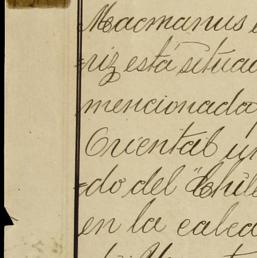 Macmanus
riz está situad
mencionada
Oriental un
do del "Chil
en la calza